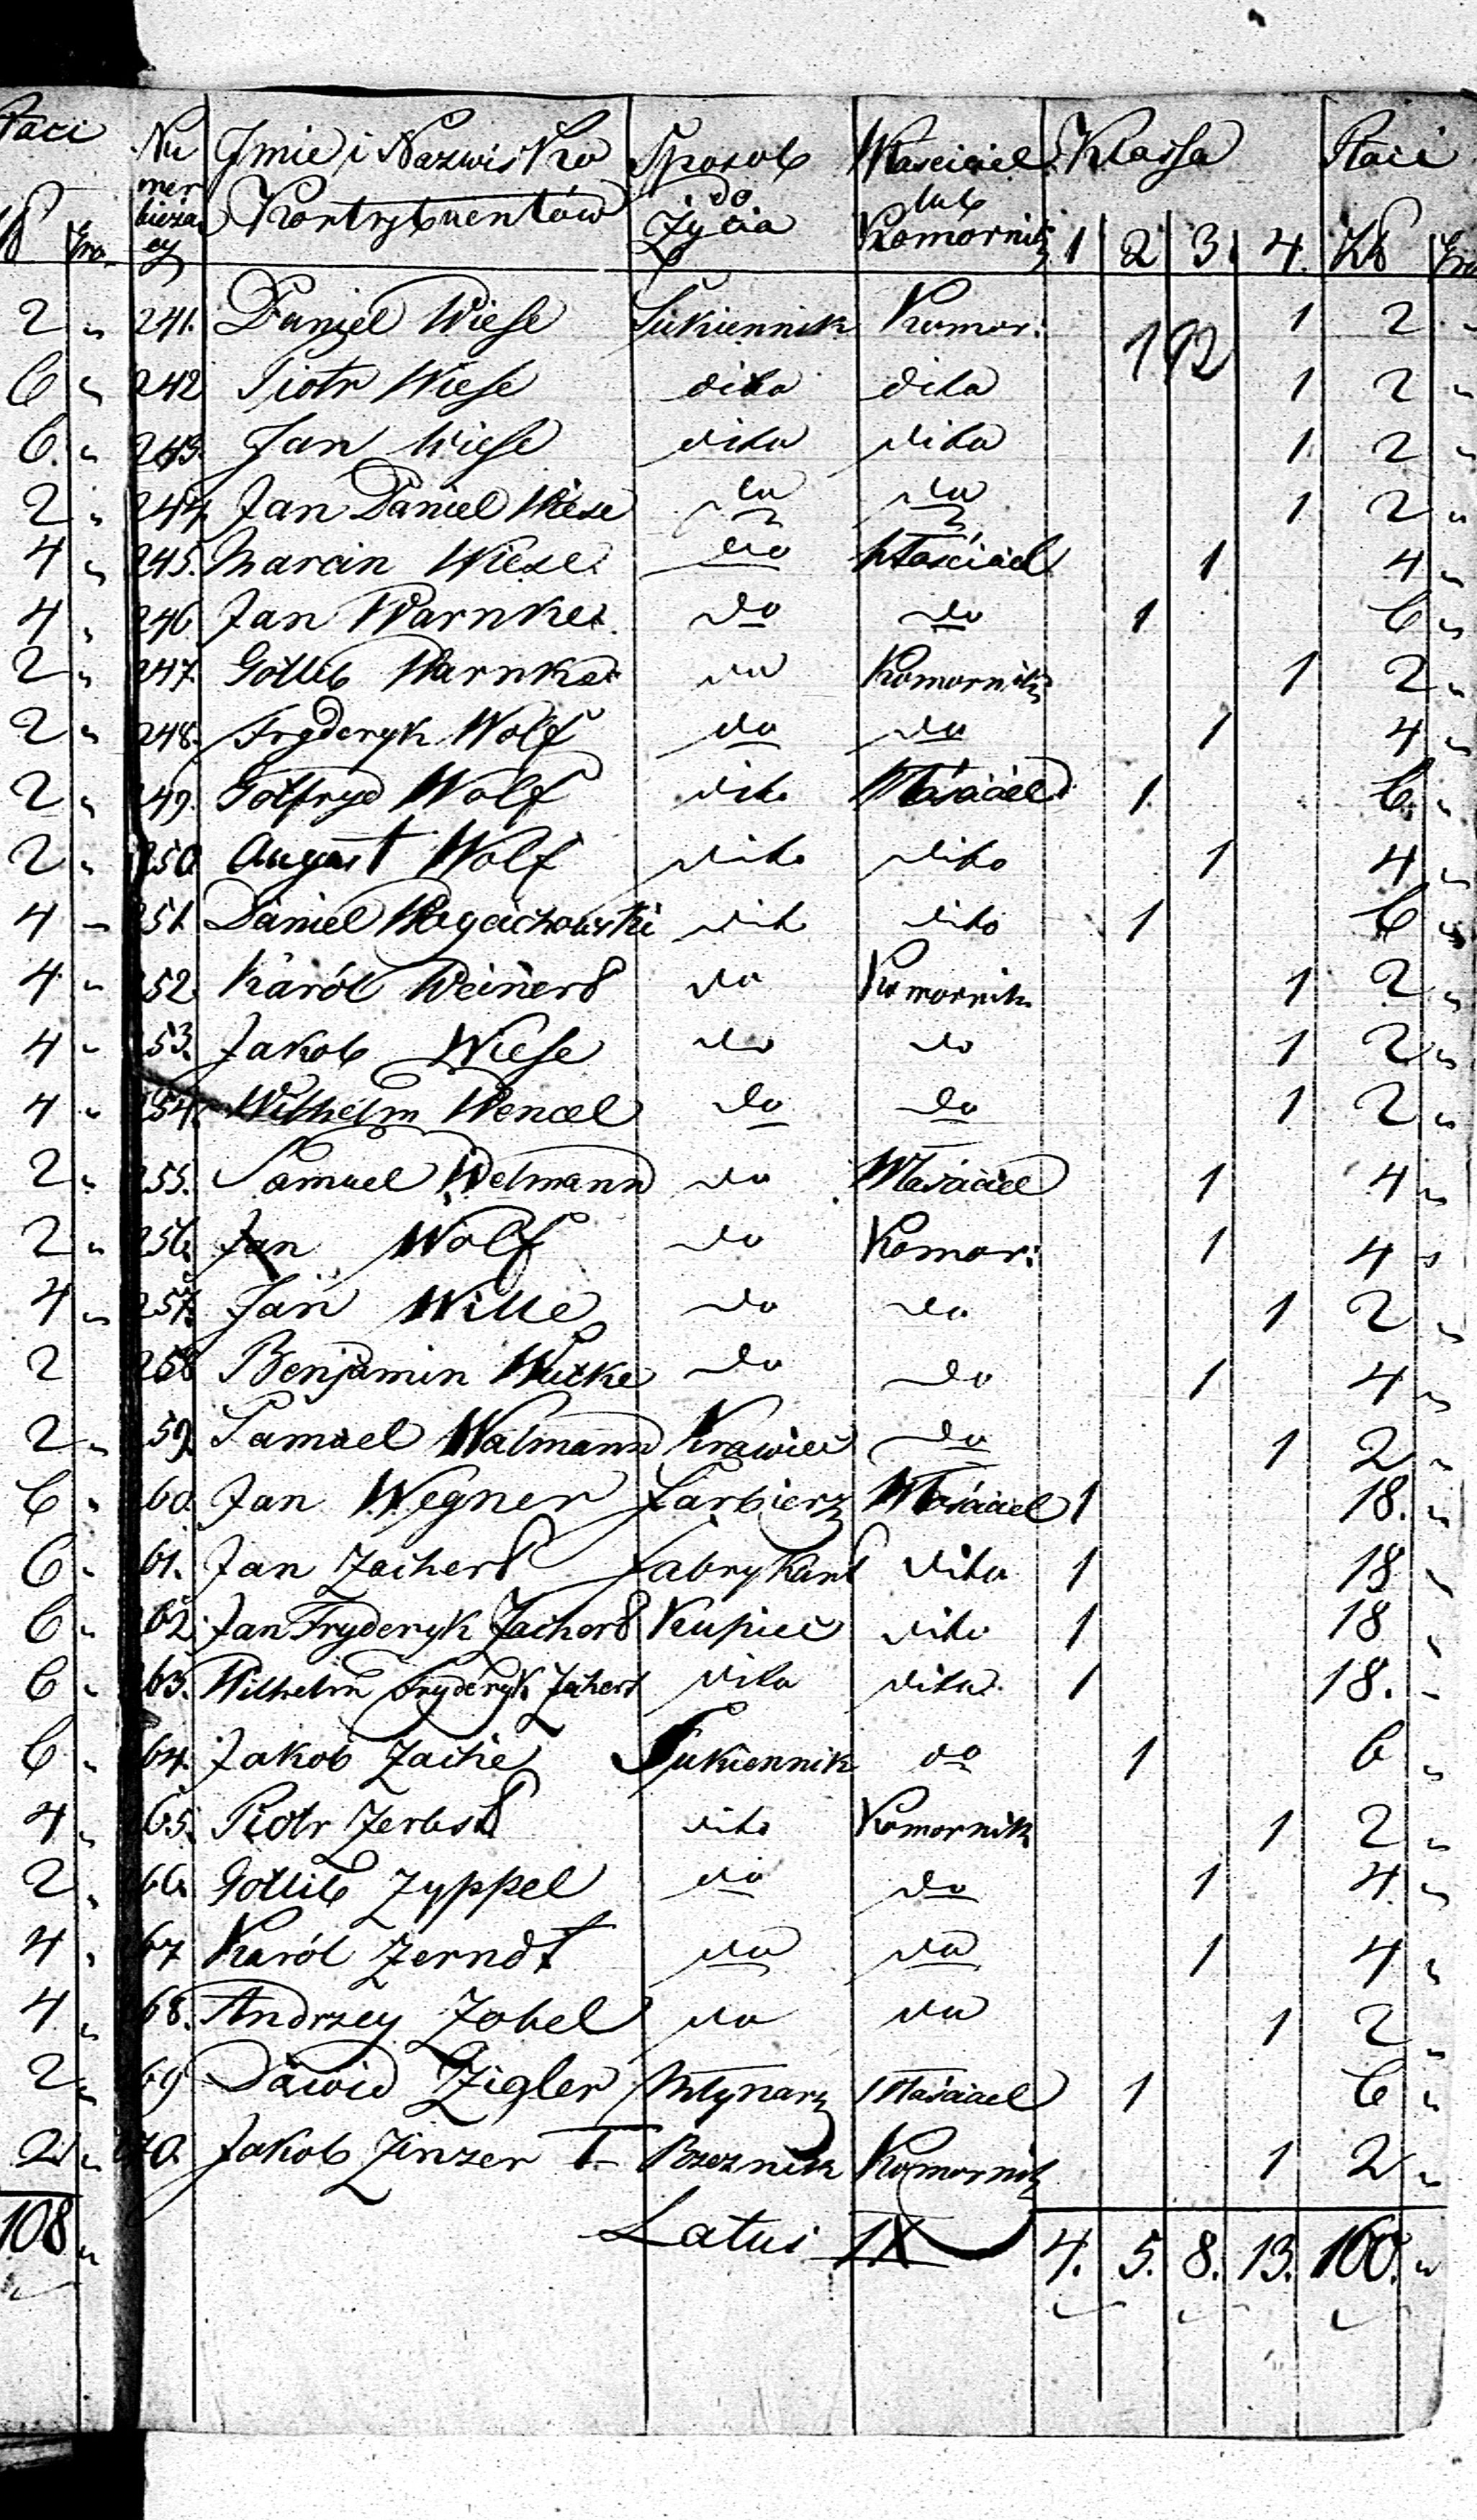 Płaci
Nu
mer
bieżą
cy
Jmie i Nazwisko
Kontrybuentów
Sposob
do
Życia
Właściciel
lub
Kommornik
Klassa
Płaci
Gro
1 2 3. 4. Zł Gro
2 " 241. Daniel Wiese Sukiennik Komor: 1 2 "
192
6 " 242 Piotr Wiese dito dito 1 2 "
6. " 243. Jan Wiese dito dito 1 2 "
2 " 244. Jan Daniel Wiese do do 1 2 "
4 " 245. Marcin Wiese do Właściciel 1 4 "
4 " 246 Jan Warnke do do 1 6 "
2 " 247. Gottlib Warnke do Komornik 1 2 "
2 " 248. Fryderyk Wolf do do 1 4 "
2 " 249. Gotfryd Wolf dito Właściciel 1 6. "
2 " 250 August Wolf dito dito 1 4 "
4 " 251. Daniel dito dito 1 6 "
4 " 252 Karól Weinert do Komornik 1 2 "
4 " 253. Jakob Wiese do do 1 2 "
4 " 254. Wilhelm Wencel do do 1 2 "
2 " 255. Samuel Welmann do Właściciel 1 4 "
2 " 256. Jan Wolf do Komor: 1 4 "
4 " 257. Jan Wille do do 1 2 "
2 258 Benjamin Wutke do do 1 4 "
2 " 59. Samuel Walmann Krawiec do 1 2 "
6 " 60. Jan Wegner Farbierz Właściciel 1 18. "
6 " 61. Jan Zachert Fabrykant dito 1 18 "
6 " 62. Jan Fryderyk Zachert Kupiec dito 1 18 "
6 " 63. Wilhelm Fryderyk Zachert dito dito 1 18. "
6 " 64. Jakob Zache Sukiennik do 1 6 "
4 " 65. Piotr Zerbst dito Komornik 1 2 "
2 " 66. Gottlib Zyppel do do 1 4 "
4 " 67 Karól Zerndt do do 1 4 "
4 " 68. Andrzey Zobel do do 1 2 "
2 " 69 Dawid Zigler Młynarz Właściciel 1 6 "
2 " 70. Jakob Zinzer Komornik 1 2 "
108 " Latus IX 4. 5. 8. 13. 100. "